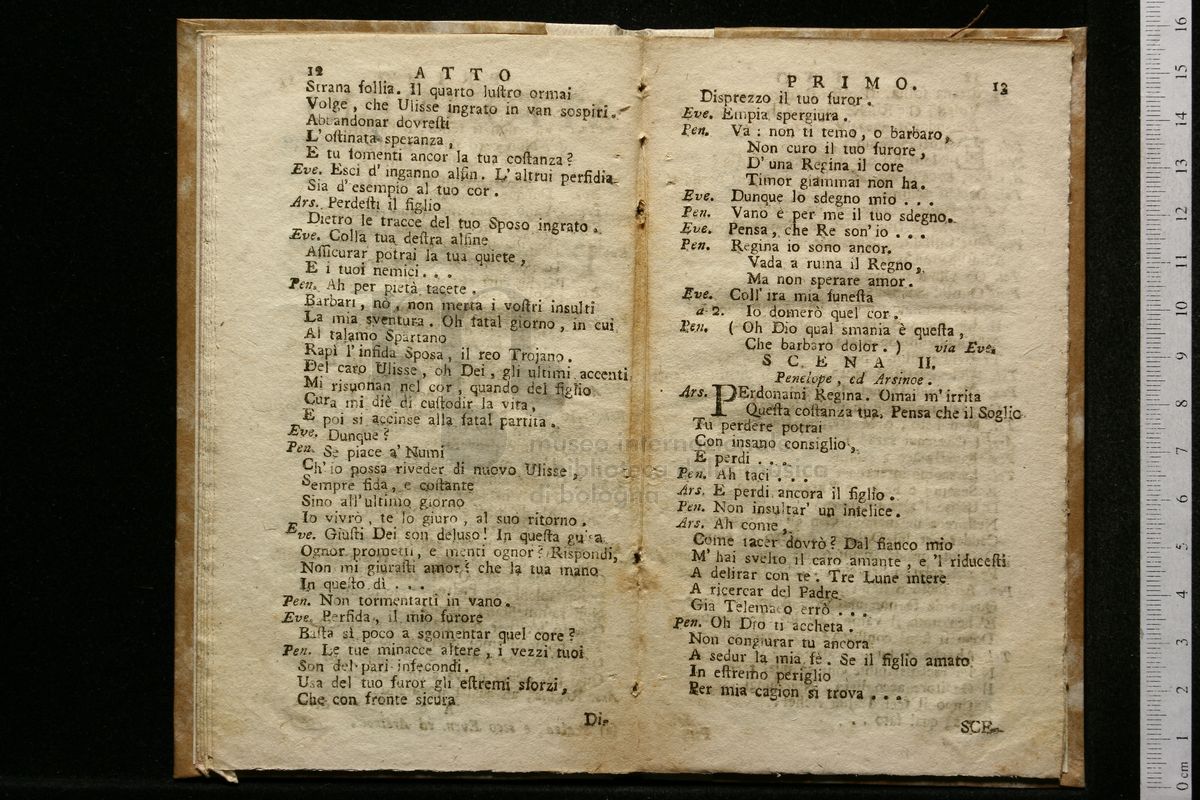 12 ATTO
Strana follia. Il quarto luſtro ormai
Volge, che Ulisse ingrato in van sospiri.
Abbandonar dovreſti
L' oſtinata speranza,
E tu fomenti ancor la tua coſtanza?
Eve. Esci d' inganno alfin. L' altrui perfidia
Sia d' esempio al tuo cor.
Ars. Perdeſti il figlio
Dietro le tracce del tuo Sposo ingrato.
Eve. Colla tua deſtra alfine
Aſſicurar potrai la tua quiete,
E i tuoi nemici...
Pen. Ah per pietà tacete.
Barbari, nò, non merta i voſtri insulti
La mia sventura. Oh fatal giorno, in cui
Al talamo Spartano
Rapì l' infida Sposa, il reo Trojano.
Del caro Ulisse, oh Dei, gli ultimi accenti
Mi risuonan nel cor, quando del figlio
Cura mi diè di cuſtodir la vita,
E poi si accinse alla fatal partita.
Eve. Dunque?
Pen. Se piace a' Numi
Ch' io possa riveder di nuovo Ulisse,
Sempre fida, e coſtante
Sino all' ultimo giorno
Io vivrò, te lo giuro, al suo ritorno.
Eve. Giuſti Dei son deluso! In queſta guisa
Ognor prometti, e menti ognor? Rispondi,
Non mi giuraſti amor? che la tua mano
In queſto dì...
Pen. Non tormentarti in vano.
Eve. Perfida, il mio furore
Baſta sì poco a sgomentar quel core?
Pen. Le tue minacce altere, i vezzi tuoi
Son del pari infecondi.
Usa del tuo furor gli eſtremi sforzi,
Che con fronte sicura
Di-
PRIMO. 13
Disprezzo il tuo furor.
Eve. Empia spergiura.
Pen. Va: non ti temo, o barbaro,
Non curo il tuo furore,
D' una Regina il core
Timor giammai non ha.
Eve. Dunque lo sdegno mio...
Pen. Vano è per me il tuo sdegno.
Eve. Pensa, che Re son' io...
Pen. Regina io sono ancor.
Vada a ruina il Regno,
Ma non sperare amor.
Eve. Coll' ira mia funeſta
a 2. Io domerò quel cor.
Pen. (Oh Dio qual smania è queſta,
Che barbaro dolor.) via Eve.
SCENA II.
Penelope, ed Arsinoe.
Ars. PErdonami Regina. Omai m' irrita
Queſta coſtanza tua. Pensa che il Soglio
Tu perdere potrai
Con insano consiglio,
E perdi...
Pen. Ah taci...
Ars. E perdi ancora il figlio.
Pen. Non insultar' un infelice.
Ars. Ah come,
Come tacer dovrò? Dal fianco mio
M' hai svelto il caro amante, e 'l riduceſti
A delirar con te. Tre Lune intere
A ricercar del Padre
Gia Telemaco errò...
Pen. Oh Dio ti accheta.
Non congiurar tu ancora
A sedur la mia fè. Se il figlio amato
In eſtremo periglio
Per mia cagion si trova...
SCE-
museo internazionale
biblioteca della musica
di bologna
0 cm 1 2 3 4 5 6 7 8 9 10 11 12 13 14 15 16